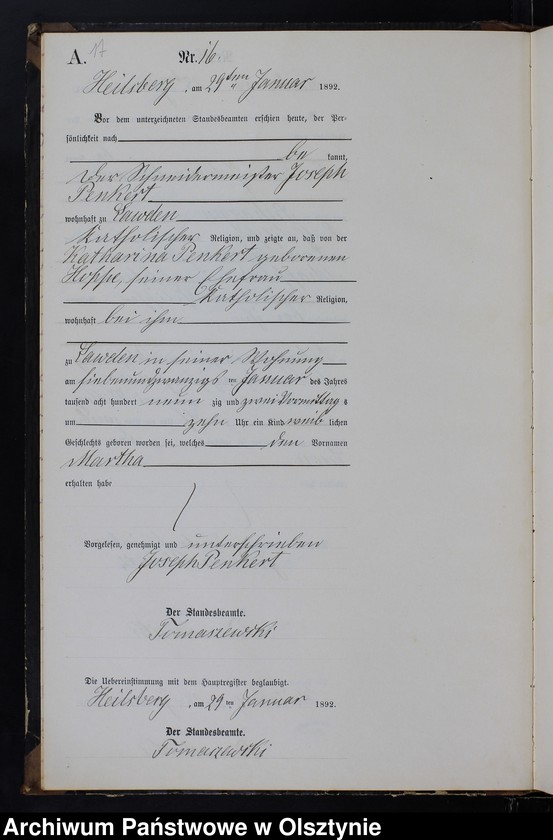 A. 17 Nr. 16.
Heilsberg, am 29ten Januar 1892.
Vor dem unterzeichneten Standesbeamten erschien heute, der Per-
sönlichkeit nach
be kannt,
der Schneidermeister Joseph
Penkert
wohnhaft zu Lawden
katholischer Religion, und zeigte an, daß von der
Katharina Penkert geborenen
Hoppe, seiner Ehefrau
katholischer Religion,
wohnhaft bei ihm
zu Lawden in seiner Wohnung
am siebenundzwanzigsten Januar des Jahres
tausend acht hundert neun zig und zwei Vormittag s
um zehn Uhr ein Kind weib lichen
Geschlechts geboren worden sei, welches den Vornamen
Martha
erhalten habe
Vorgelesen, genehmigt und unterschrieben
Joseph Penkert
Der Standesbeamte.
Tomaszewski
Die Uebereinstimmung mit dem Hauptregister beglaubigt.
Heilsberg, am 29ten Januar 1892.
Der Standesbeamte.
Tomaszewski
Archiwum Państwowe w Olsztynie